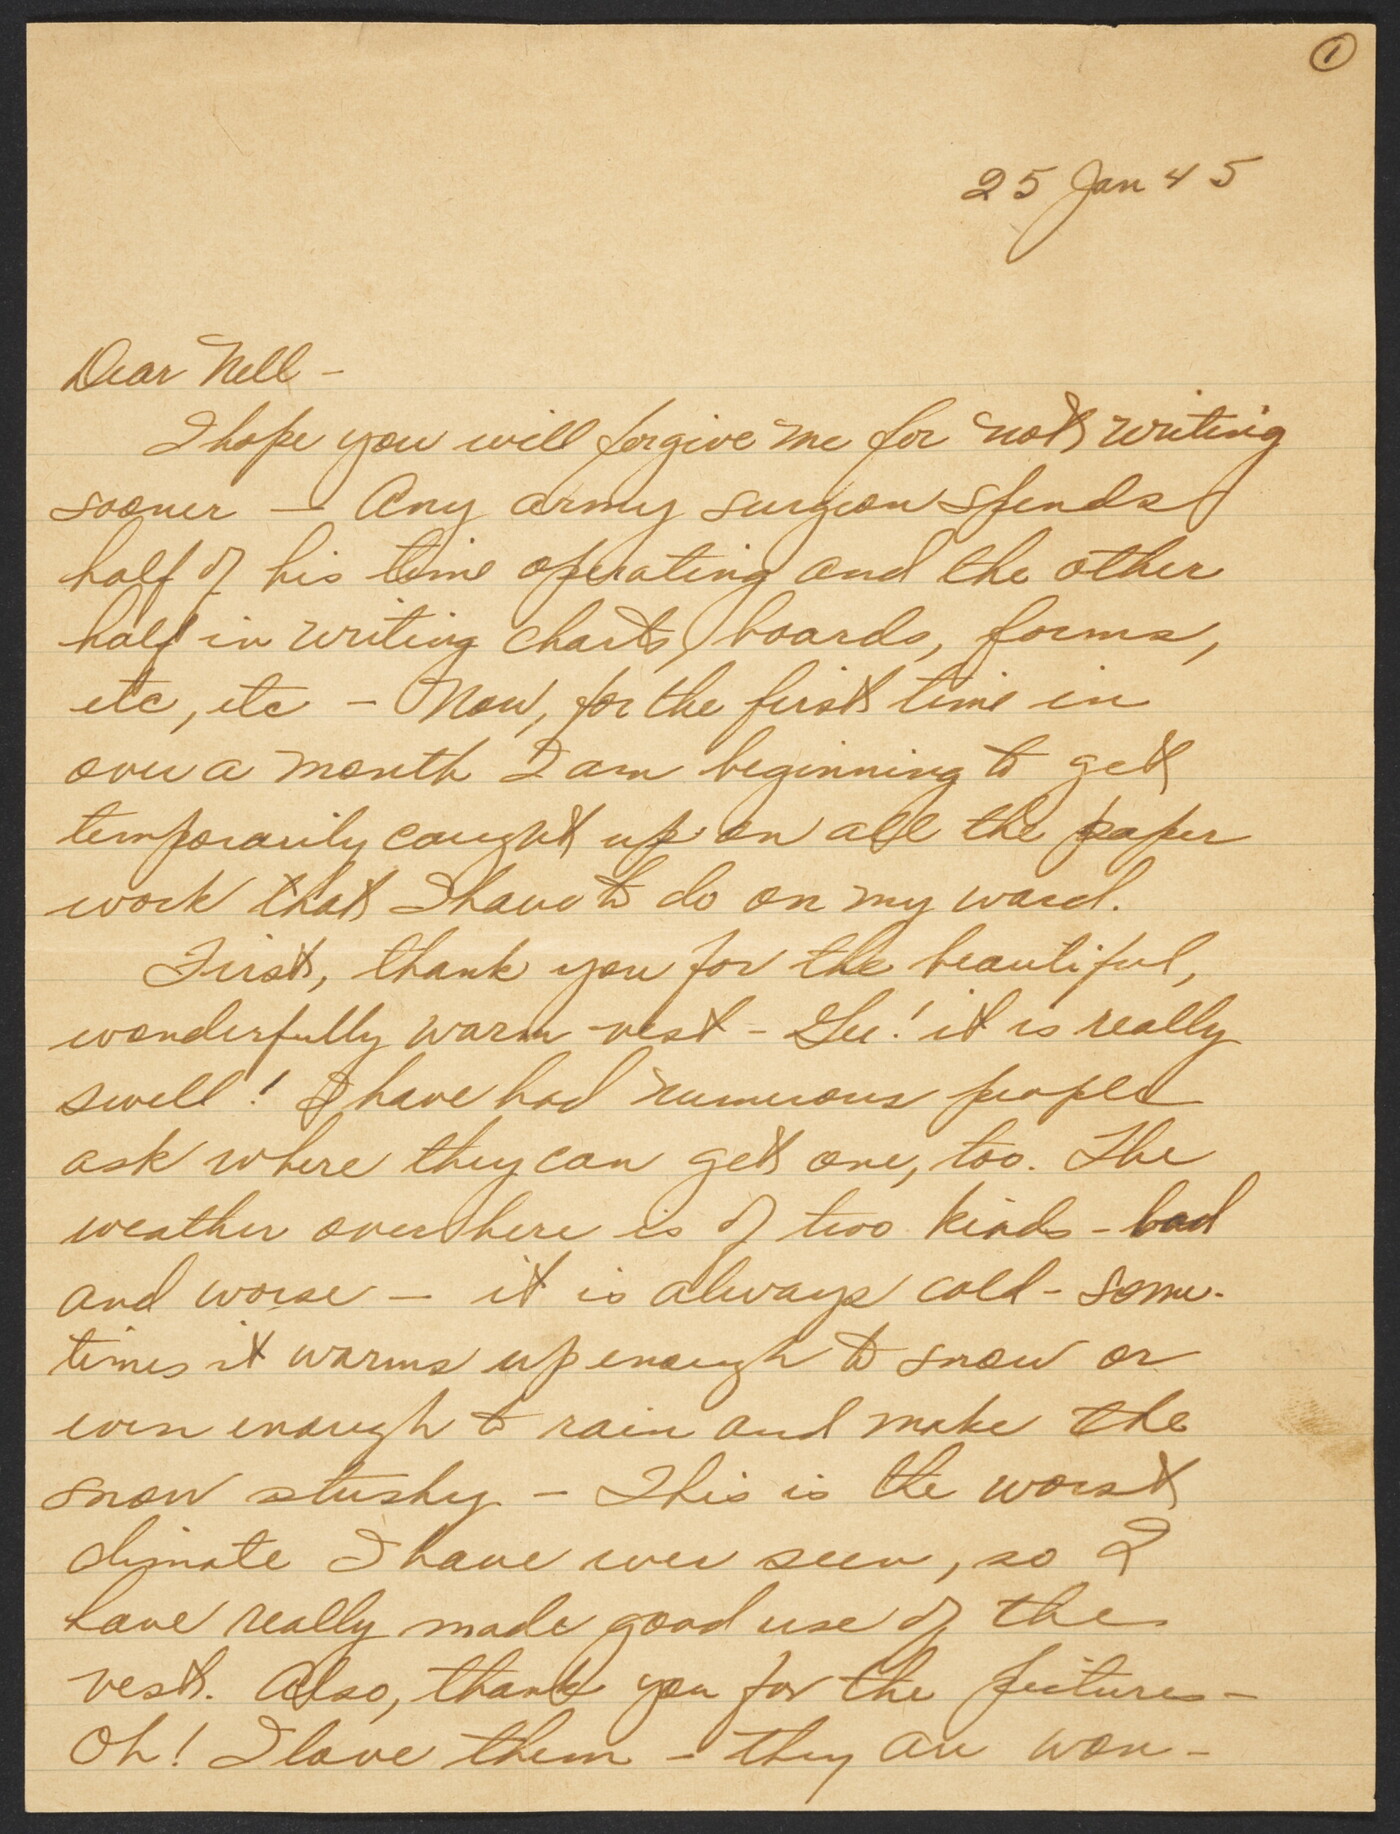 1
25 Jan 45
Dear Nell -
I hope you will forgive me for not writing
sooner — Any army surgeon spends
half of his time operating and the other
half in writing charts, boards, forms,
etc, etc - Now, for the first time in
over a month I am beginning to get
temporarily caught up on all the paper
work that I have to do on my ward.
First, thank you for the beautiful,
wonderfully warm vest - Gee! it is really
swell! I have had numerous people
ask where they can get one, too. The
weather over here is of two kinds - bad
and worse — it is always cold - some-
times it warms up enough to snow or
even enough to rain and make the
snow slushy. - This is the worst
climate I have ever seen, so I
have really made good use of the
vest. Also, thank you for the pictures -
Oh! I love them - they are won-